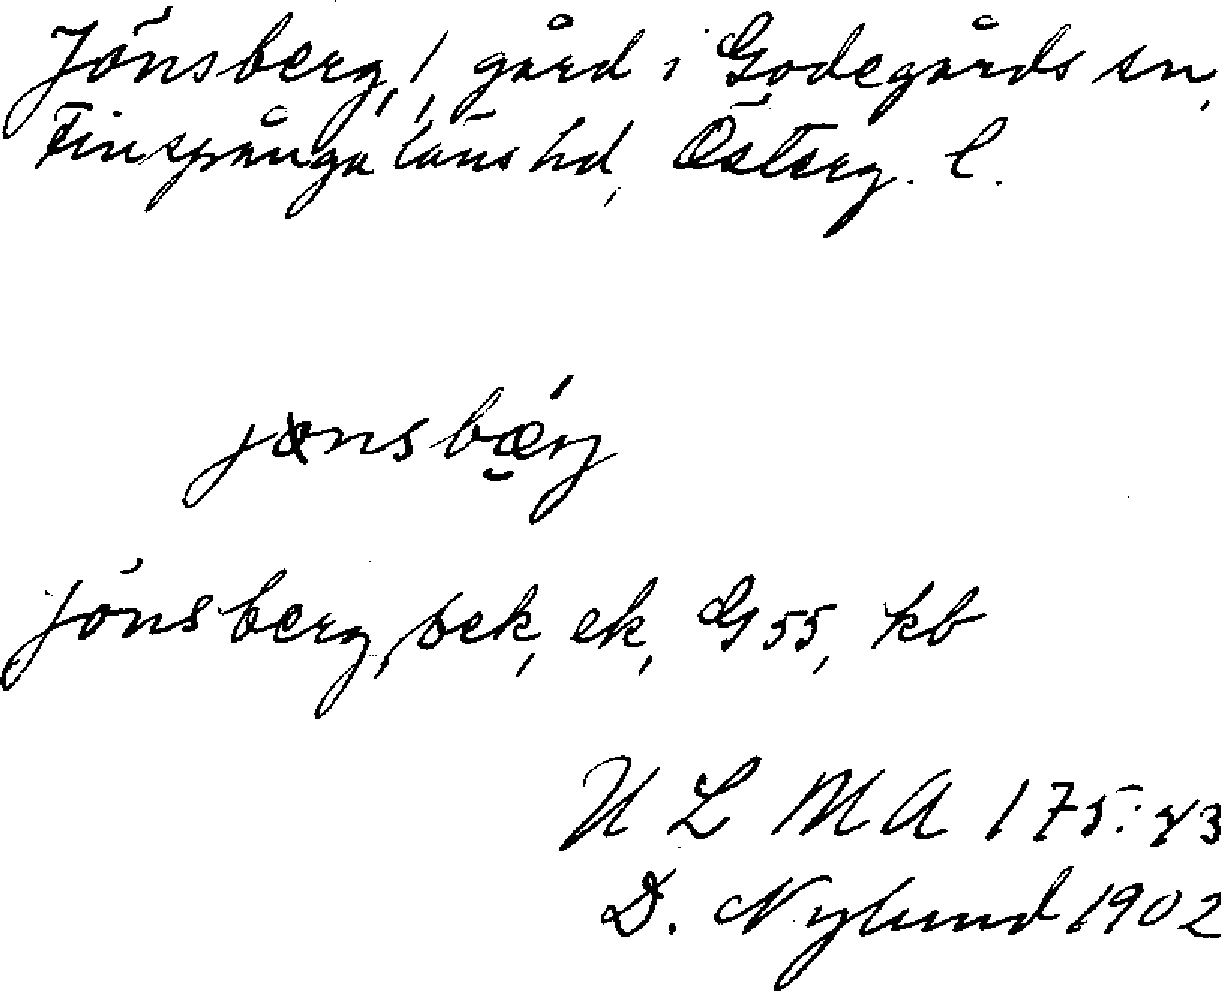 Jönsberg, 1, gård i Godegårds sn,
Finspånga läns hd, Österg. l.
Jönsberg, sek, ek, G 55, kb
U L M A 175:
D. Nylund 1902